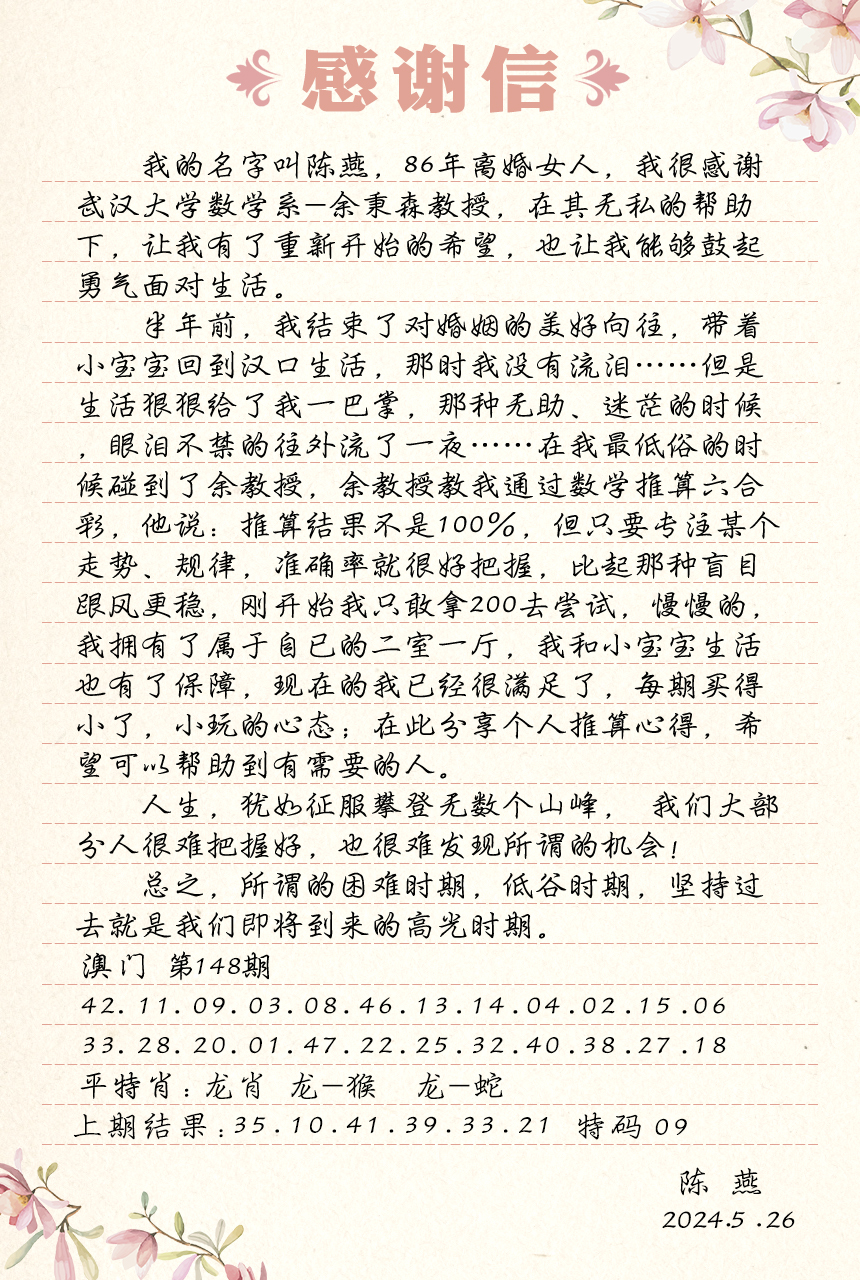 感谢信
我的名字叫陈燕，86年离婚女人，我很感谢
武汉大学数学系—余秉森教授，在其无私的帮助
下，让我有了重新开始的希望，也让我能够鼓起
勇气面对生活。
半年前，我结束了对婚姻的美好向往，带着
小宝宝回到汉口生活，那时我没有流泪……但是
生活狠狠给了我一巴掌，那种无助、迷茫的时候
，眼泪不禁的往外流了一夜……在我最低俗的时
候碰到了余教授，余教授教我通过数学推算六合
彩，他说：推算结果不是100%，但只要专注某个
走势、规律，准确率就很好把握，比起那种盲目
跟风更稳，刚开始我只敢拿200去尝试，慢慢的，
我拥有了属于自已的二室一厅，我和小宝宝生活
也有了保障，现在的我已经很满足了，每期买得
小了，小玩的心态；在此分享个人推算心得，希
望可以帮助到有需要的人。
人生，犹如征服攀登无数个山峰， 我们大部
分人很难把握好，也很难发现所谓的机会！
总之，所谓的困难时期，低谷时期，坚持过
去就是我们即将到来的高光时期。
澳门 第148期
42.11.09.03.08.46.13.14.04.02.15.06
33.28.20.01.47.22.25.32.40.38.27.18
平特肖：龙肖 龙—猴 龙—蛇
上期结果：35.10.41.39.33.21 特码 09
陈 燕
2024.5.26